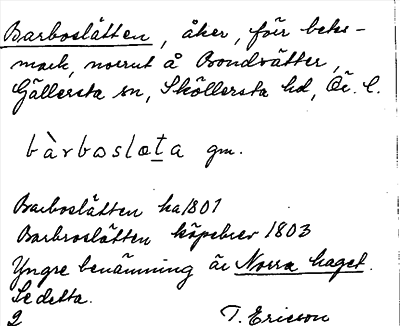 Barboslätten, åker, förr betes-
mark, norrut å Bondsätter,
Gällersta sn, Sköllersta hd, Ör. l.
bàrboslæta gm.
Barboslätten ha 1801
Barbroslätten köpebrev 1803
Yngre benämning är Norra haget.
Se detta.
2 T. Ericson